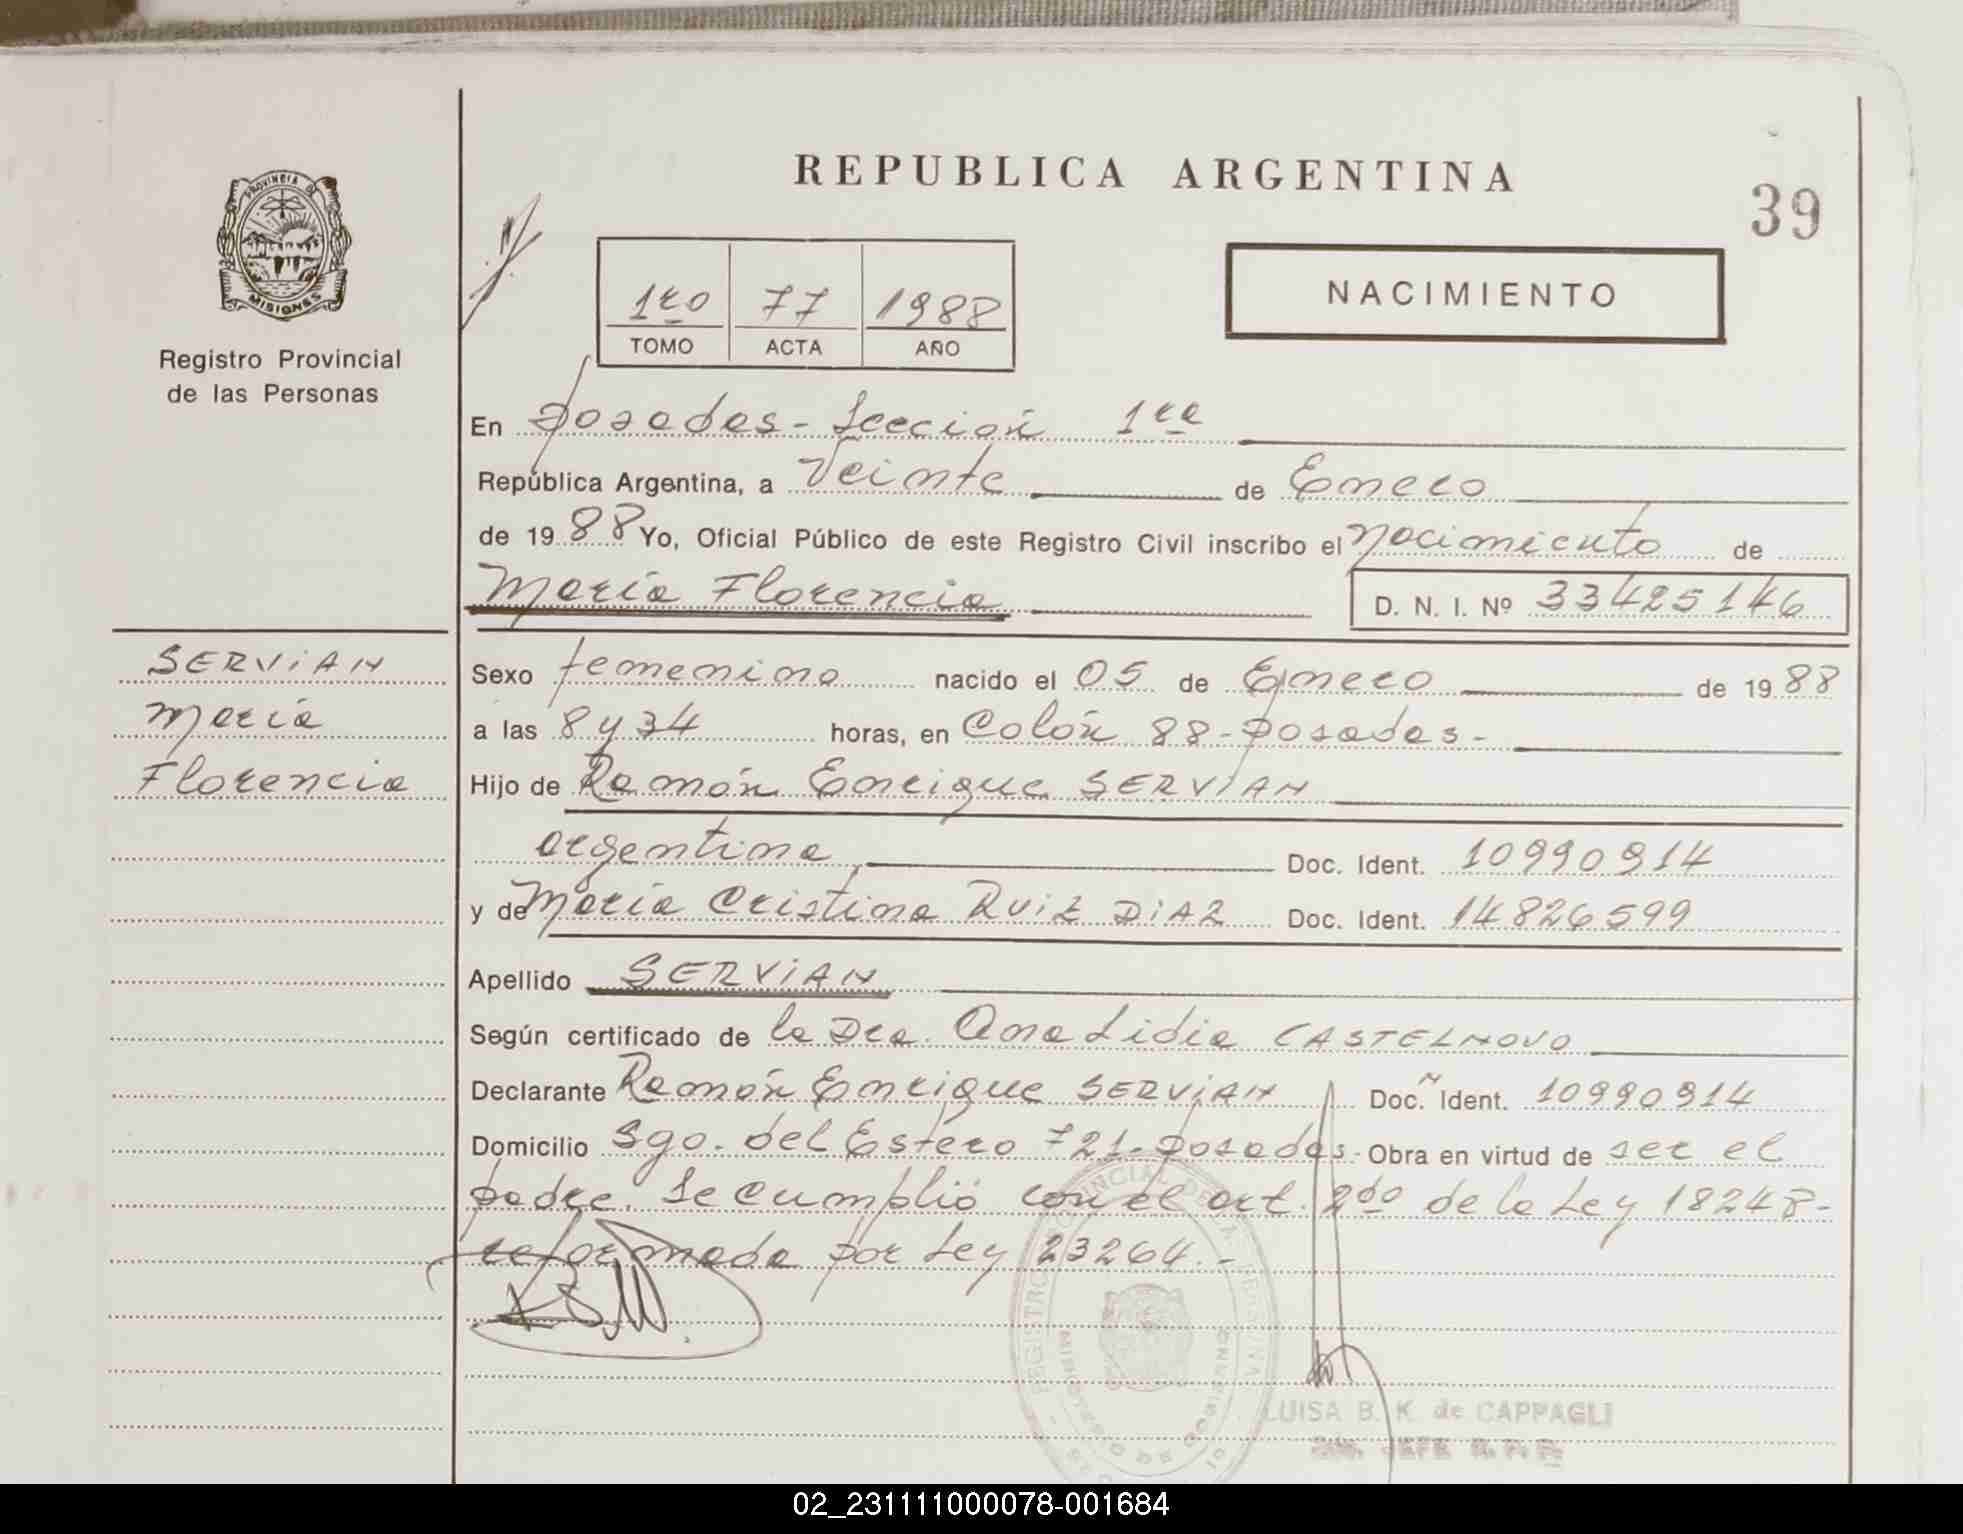 REPUBLICA ARGENTINA
39
PROVINCIA DE
MISIONES
Registro Provincial
de las Personas
1ro 77 1988
TOMO ACTA AÑO
NACIMIENTO
En Posadas - Sección 1ra
República Argentina, a Veinte de Enero
de 1988 Yo, Oficial Público de este Registro Civil inscribo el Nacimiento de
María Florencia D. N. I. Nº 33425146
SERVIAN
María
Florencia
Sexo femenino nacido el 05 de Enero de 1988
a las 8 y 34 horas, en Colón 88 - Posadas -
Hijo de Ramón Enrique SERVIAN
argentina Doc. Ident. 10990914
y de María Cristina RUIZ DIAZ Doc. Ident. 14826599
Apellido SERVIAN
Según certificado de la Dra. Ana Lidia CASTELNOVO
Declarante Ramón Enrique SERVIAN Doc. Ident. 10990914
Domicilio Sgo. del Estero 721 - Posadas - Obra en virtud de ser el
padre. Se cumplió con el art. 2do de la Ley 18248 -
reformada por Ley 23264. -
REGISTRO PROVINCIAL DE LAS PERSONAS
MINISTERIO DE GOBIERNO
LUISA B. K. de CAPPAGLI
JEFE R. P. P.
02_231111000078-001684